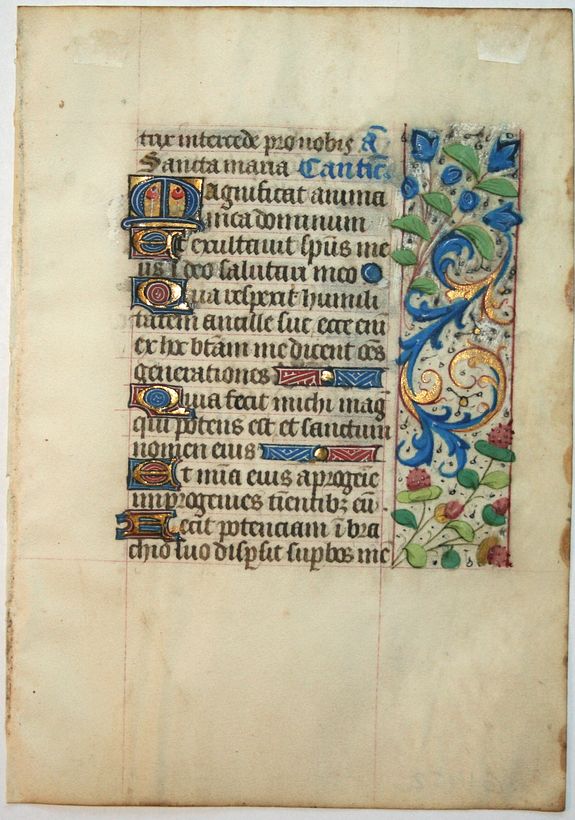 trix intercede pro nobis añ
Sancta maria Cantic̃
Magnificat anima
mea dominum
Et exultauit sp̃us me
us ĩ deo salutari meo
Quia respexit humili
tatem ancille sue ecce eni
ex hoc b̃tam me dicent oẽs
generationes
Quia fecit michi mag
qui potens est et sanctum
nomen eius
Et mĩa eius a progeie
in progenies timentibꝫ eũ
Fecit potenciam ĩ bra
chio suo disp̃sit sup̃bos me